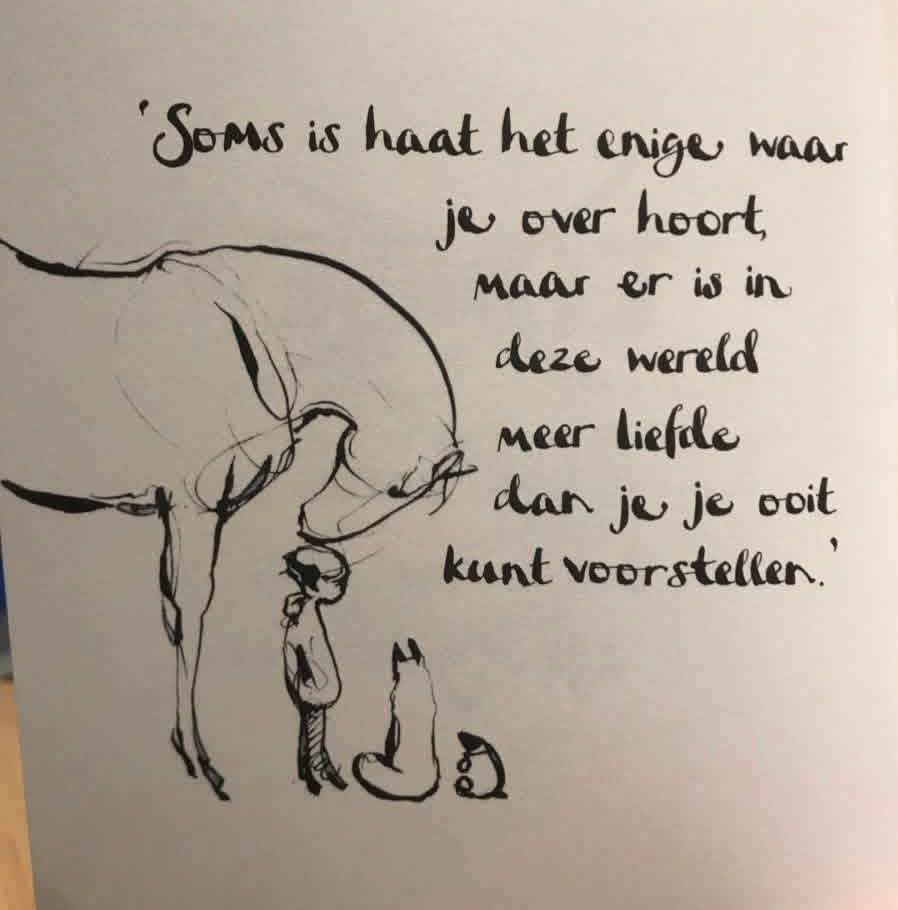 'Soms is haat het enige waar
je over hoort,
maar er is in
deze wereld
meer liefde
dan je je ooit
kunt voorstellen.'